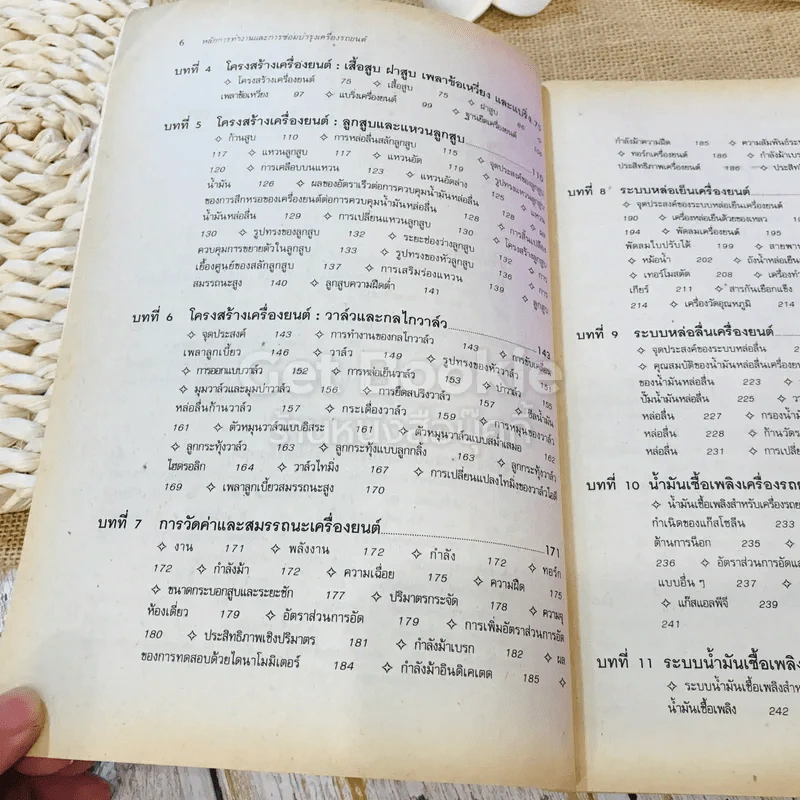 6 หลักการทำงานและการซ่อมบำรุงเครื่องรถยนต์
บทที่ 4 โครงสร้างเครื่องยนต์ : เสื้อสูบ ฝาสูบ เพลาข้อเหวี่ยง และแบริ่ง 75
✧ โครงสร้างเครื่องยนต์ 75 ✧ เสื้อสูบ 75 ✧ ฝาสูบ 86 ✧
เพลาข้อเหวี่ยง 97 ✧ แบริ่งเครื่องยนต์ 99 ✧ ฐานยึดเครื่องยนต์ 106
บทที่ 5 โครงสร้างเครื่องยนต์ : ลูกสูบและแหวนลูกสูบ 110
✧ ก้านสูบ 110 ✧ การหล่อลื่นสลักลูกสูบ 115 ✧ จุดประสงค์ของลูกสูบ
117 ✧ แหวนลูกสูบ 117 ✧ แหวนอัด 119 ✧ รูปทรงแหวนลูกสูบ
120 ✧ การเคลือบบนแหวน 123 ✧ แหวนอัดล่าง 125 ✧ แหวน
น้ำมัน 126 ✧ ผลของอัตราเร็วต่อการควบคุมน้ำมันหล่อลื่น 128 ✧ ผล
ของการสึกหรอของเครื่องยนต์ต่อการควบคุมน้ำมันหล่อลื่น 128 ✧ การลื่นเปลือง
น้ำมันหล่อลื่น 129 ✧ การเปลี่ยนแหวนลูกสูบ 130 ✧ โครงสร้างลูกสูบ
130 ✧ รูปทรงของลูกสูบ 132 ✧ ระยะช่องว่างลูกสูบ 132 ✧ การ
ควบคุมการขยายตัวในลูกสูบ 133 ✧ รูปทรงของหัวลูกสูบ 136 ✧ การ
เยื้องศูนย์ของสลักลูกสูบ 137 ✧ การเสริมร่องแหวน 139 ✧ ลูกสูบ
สมรรถนะสูง 140 ✧ ลูกสูบความฝืดต่ำ 141
บทที่ 6 โครงสร้างเครื่องยนต์ : วาล์วและกลไกวาล์ว 143
✧ จุดประสงค์ 143 ✧ การทำงานของกลไกวาล์ว 143 ✧ การขับเคลื่อน
เพลาลูกเบี้ยว 146 ✧ วาล์ว 149 ✧ รูปทรงของหัววาล์ว
✧ การออกแบบวาล์ว 152 ✧ การหล่อเย็นวาล์ว 153 ✧ บ่าวาล์ว 155
✧ มุมวาล์วและมุมบ่าวาล์ว 156 ✧ การยึดสปริงวาล์ว ✧ ซีลน้ำมัน
หล่อลื่นก้านวาล์ว 157 ✧ กระเดื่องวาล์ว 159 ✧ การหมุนของวาล์ว
161 ✧ ตัวหมุนวาล์วแบบอิสระ 161 ✧ ตัวหมุนวาล์วแบบสม่ำเสมอ 162
✧ ลูกกระทุ้งวาล์ว 163 ✧ ลูกกระทุ้งแบบลูกกลิ้ง 163 ✧ ลูกกระทุ้งวาล์ว
ไฮดรอลิก 164 ✧ วาล์วไทมิ่ง 167 ✧ การเปลี่ยนแปลงไทมิ่งของวาล์วไอดี
169 ✧ เพลาลูกเบี้ยวสมรรถนะสูง 170
บทที่ 7 การวัดค่าและสมรรถนะเครื่องยนต์ 171
✧ งาน 171 ✧ พลังงาน 172 ✧ กำลัง 172 ✧ ทอร์ก
172 ✧ กำลังม้า 172 ✧ ความเฉื่อย 175 ✧ ความฝืด 175
✧ ขนาดกระบอกสูบและระยะชัก 177 ✧ ปริมาตรกระจัด 178 ✧ ความจุ
ห้องเดี่ยว 179 ✧ อัตราส่วนการอัด 179 ✧ การเพิ่มอัตราส่วนการอัด
180 ✧ ประสิทธิภาพเชิงปริมาตร 181 ✧ กำลังม้าเบรก 182 ✧ ผล
ของการทดสอบด้วยไดนาโมมิเตอร์ 184 ✧ กำลังม้าอินดิเคเตด 185 ✧
กำลังม้าความฝืด 185 ✧ ความสัมพันธ์ระห
✧ ทอร์กเครื่องยนต์ 186 ✧ กำลังม้าเบร
ประสิทธิภาพเครื่องยนต์ 186 ✧ ประสิท
บทที่ 8 ระบบหล่อเย็นเครื่องยนต์
✧ จุดประสงค์ของระบบหล่อเย็นเครื่องยนต์
190 ✧ เครื่องหล่อเย็นด้วยของเหลว
194 ✧ พัดลมเครื่องยนต์ 195
พัดลมใบปรับได้ 199 ✧ สายพาน
✧ หม้อน้ำ 202 ✧ ถังน้ำหล่อเย็น
✧ เทอร์โมสตัต 208 ✧ เครื่องทำ
เกียร์ 211 ✧ สารกันเยือกแข็ง
214 ✧ เครื่องวัดอุณหภูมิ 214
บทที่ 9 ระบบหล่อลื่นเครื่องยนต์
✧ จุดประสงค์ของระบบหล่อลื่น
✧ คุณสมบัติของน้ำมันหล่อลื่นเครื่องยน
ของน้ำมันหล่อลื่น 223 ✧
ปั๊มน้ำมันหล่อลื่น 225 ✧ วา
หล่อลื่น 227 ✧ กรองน้ำมั
หล่อลื่น 228 ✧ ก้านวัดร
หล่อลื่น 231 ✧ การเปลี่ย
บทที่ 10 น้ำมันเชื้อเพลิงเครื่องรถย
✧ น้ำมันเชื้อเพลิงสำหรับเครื่องรถย
กำเนิดของแก๊สโซลีน 233
ต้านการน็อก 235 ✧
236 ✧ อัตราส่วนการอัดและ
แบบอื่น ๆ 237 ✧
✧ แก๊สแอลพีจี 239
241
บทที่ 11 ระบบน้ำมันเชื้อเพลิง
✧ ระบบน้ำมันเชื้อเพลิงสำห
น้ำมันเชื้อเพลิง 242
Get Bookie
ร้านหนังสือบุ๊คกี้